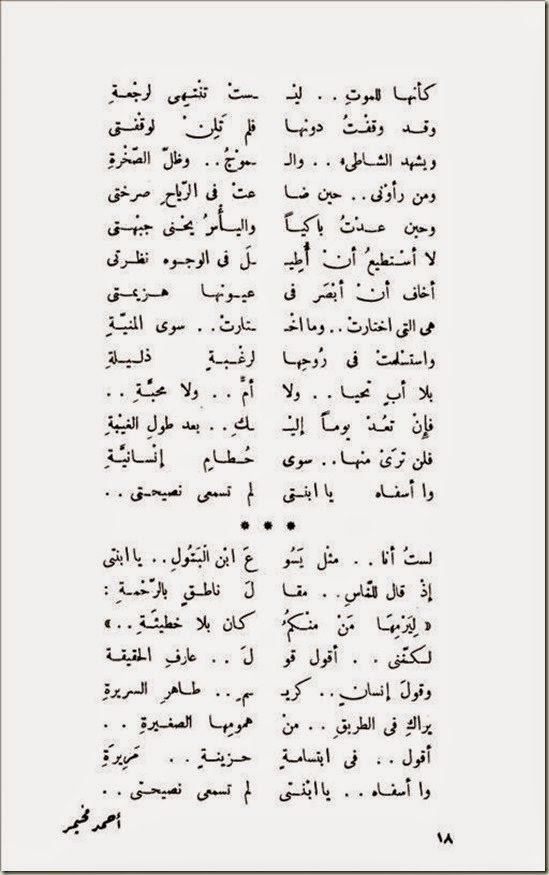 كأنها للموتِ . . ليْـ ـستْ تنْتهِى لرجْعةِ
وقد وقفْتُ دونها فلم تَلِنْ لوقْفتى
ويشهد الشاطىء . . والـ ـموْجُ . . وظلّ الصّخْرةِ
ومن رأوْنى . . حين ضا عتْ فى الرّياحِ صرختى
وحين عدْتُ باكياً واليأْسُ يحْنى جبهْتى
لا أسْتطيعُ أنْ أُطِيـ ـلَ فى الوجوه نظرتى
أخاف أنْ أبْصَر فى عيونها هزيمتى
هى التى اختارتْ . . وما اخْـ ـتارتْ . . سوى المنيّةِ
واستسْلمتْ فى رُوحِها لرغْبةٍ ذليلةِ
بلا أبٍ تحْيا . . ولا أمٍّ . . ولا محبَّةِ . .
فإِنْ تعُدْ يوماً إليْـ ـكِ . . بعد طولِ الغيْبةِ
فلن ترَىْ منها . . سوى حُطامِ إنْسانيَّةِ
وا أسفاه يا ابنتى لم تسمعى نصيحتى . .
* * *
لستُ أنا . . مثْل يَسُو عَ ابْن الْبَتُولِ . . يا ابنتى
إذْ قال للنّاسِ . . مقا لَ ناطقٍ بالرّحْمةِ :
« لِيَرْمِهَا مَنْ منْكمُ كان بلا خطيئَةِ . . »
لكنّنى . . أقول قو لَ . . عارفِ الحقيقة
وقولَ إنسانٍ . . كريـ ـمٍ . . طاهرِ السريرةِ
يراكِ فى الطريقِ . . منْ همومِها الصغيرةِ . .
أقول . . فى ابتسامةٍ حزينةٍ . . مَرِيرَةِ
وا أسفاه . . يا ابْنتى لم تسمعى نصيحتى . .
أحمد مخيمر
١٨